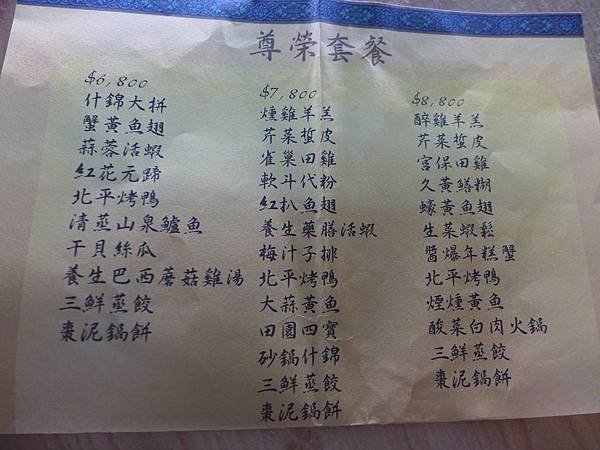 尊榮套餐
$6,800
什錦大拼
蟹黃魚翅
蒜蓉活蝦
紅花元蹄
北平烤鴨
清蒸山泉鱸魚
干貝絲瓜
養生巴西蘑菇雞湯
三鮮蒸餃
棗泥鍋餅
$7,800
燻雞羊羔
芹菜蜇皮
雀巢田雞
軟斗代粉
紅扒魚翅
養生藥膳活蝦
梅汁子排
北平烤鴨
大蒜黃魚
田園四寶
砂鍋什錦
三鮮蒸餃
棗泥鍋餅
$8,800
醉雞羊羔
芹菜蜇皮
宮保田雞
久黃鱔糊
蠔黃魚翅
生菜蝦鬆
醬爆年糕蟹
北平烤鴨
煙燻黃魚
酸菜白肉火鍋
三鮮蒸餃
棗泥鍋餅